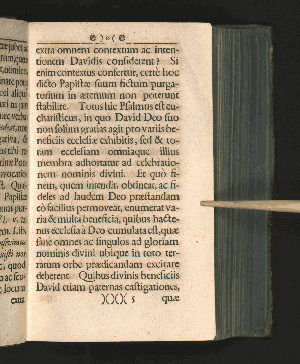 extra omnem contextum ac inten-
tionem Davidis considerent? Si
enim contextus consertur, certè hoc
dicto Papistæ suum fictum purga-
torium in æternum non poterunt
stabilire. Totus hic Psalmus est eu-
charisticus, in quo David Deo suo
non solùm gratias agit pro variis be-
neficiis ecclesiæ exhibitis, sed & to-
tam ecclesiam omniaque illius
membra adhortatur ad celebratio-
nem nominis divini. Et quò fi-
nem, quem intendit, obtineat, ac fi-
deles ad laudem Deo præstandam
eò faciliùs permoveat, enumerat va-
ria & multa beneficia, quibus hacte-
nus ecclesia à Deo cumulata est, quæ
sanè omnes ac singulos ad gloriam
nominis divini ubique in toto ter-
rarum orbe prædicandam excitare
deberent. Quibus divinis beneficiis
David etiam paternas castigationes,
)()()( 5 quæ